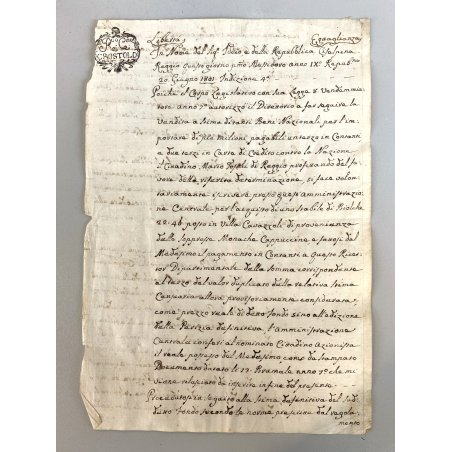 Libertà Eguaglianza
CROSTOLO
In Nome del Sig. Iddio e della Repubblica Cisalpina
Reggio questo giorno primo Messidoro anno IX. Repub.no
20 Giugno 1801 Indizione 4a
Poiché il Corpo Legislativo con sua Legge 8 Vendemmia-
tore anno 7.o autorizzò il Direttorio a far seguire la
vendita a stima di tanti Beni Nazionali per l'im-
portare di mili milioni pagabili un terzo in Contanti
e due terzi in Carte di Credito contro la Nazione
il Cittadino Mario di Reggio profittando del fa-
vore della riferita determinazione, si fece volon-
tariamente iscrivere presso questa amministrazio-
ne Centrale per l'acquisto di uno stabile di Biolche
22:46 posto in Villa Cavazzoli di provenienza
dalle soppresse Monache Cappuccine e fattosi dal
Medesimo il pagamento in Contanti a questo Ricevi-
tor Dipartimentale della somma corrispondente
al terzo del valor duplicato dalla relativa stima
Censuaria allora provvisoriamente considerata
come prezzo reale di detto fondo sino all'edizione
della Perizia definitiva l'amministrazione
Centrale conferì al nominato Cittadino Azionista
il reale possesso del Medesimo come da stampato
Documento datato li 17 Bramale anno 7.o che mi
viene rilasciato da inserire in fine del presente.
Procedutosi in seguito alla stima definitiva del sud-
detto fondo secondo le norme prescritte dal regola-
mento